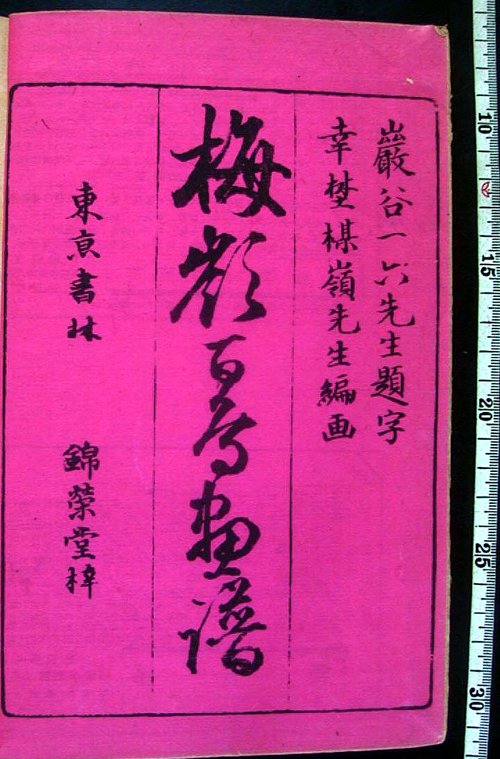 巖谷一六先生題字
幸埜楳嶺先生編画
梅嶺百鳥画譜
東京書林 錦榮堂梓
10
15
20
25
30